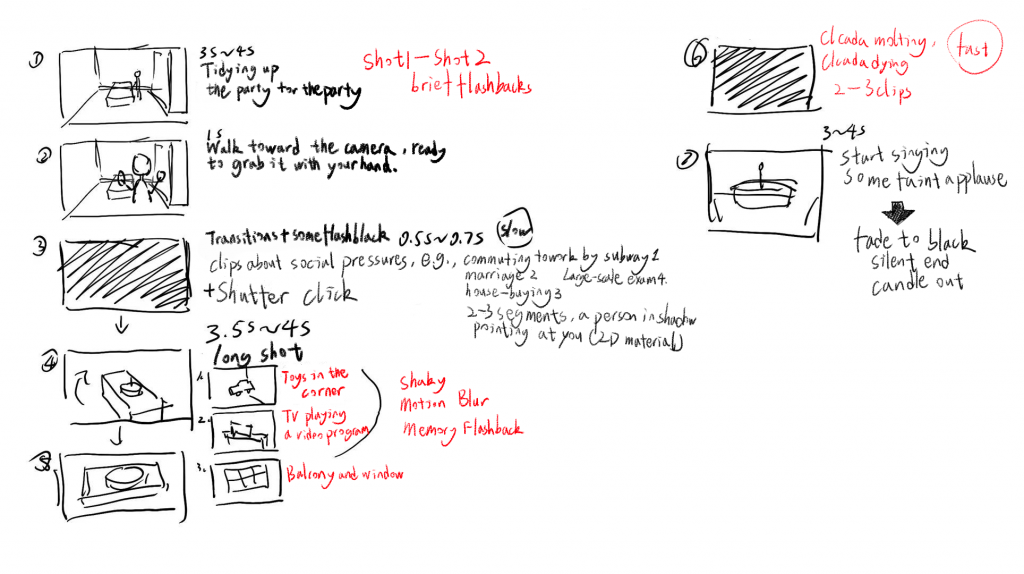 ①
3s~4s
Tidying up
the party for the party
Shot1-Shot2
brief flashbacks
②
1s
Walk toward the camera, ready
to grab it with your hand.
③
Transitions+some flashblack 0.5s~0.75
slow
clips about social pressures, e.g., commuting to work by subway 1
marriage 2 Large-scale exam 4.
house-buying 3
+Shutter click
2-3 segments, a person in shadow
pointing at you (2D material)
3.5s~4s
long shot
④
1.
Toys in the
corner
2.
TV playing
a video program
3.
Balcony and window
Shaky
Motion Blur
Memory Flashback
⑤
⑥
Cicada molting,
Cicada dying
2-3 clips
fast
⑦
3~4s
start singing
Some faint applause
fade to black
silent end
candle out